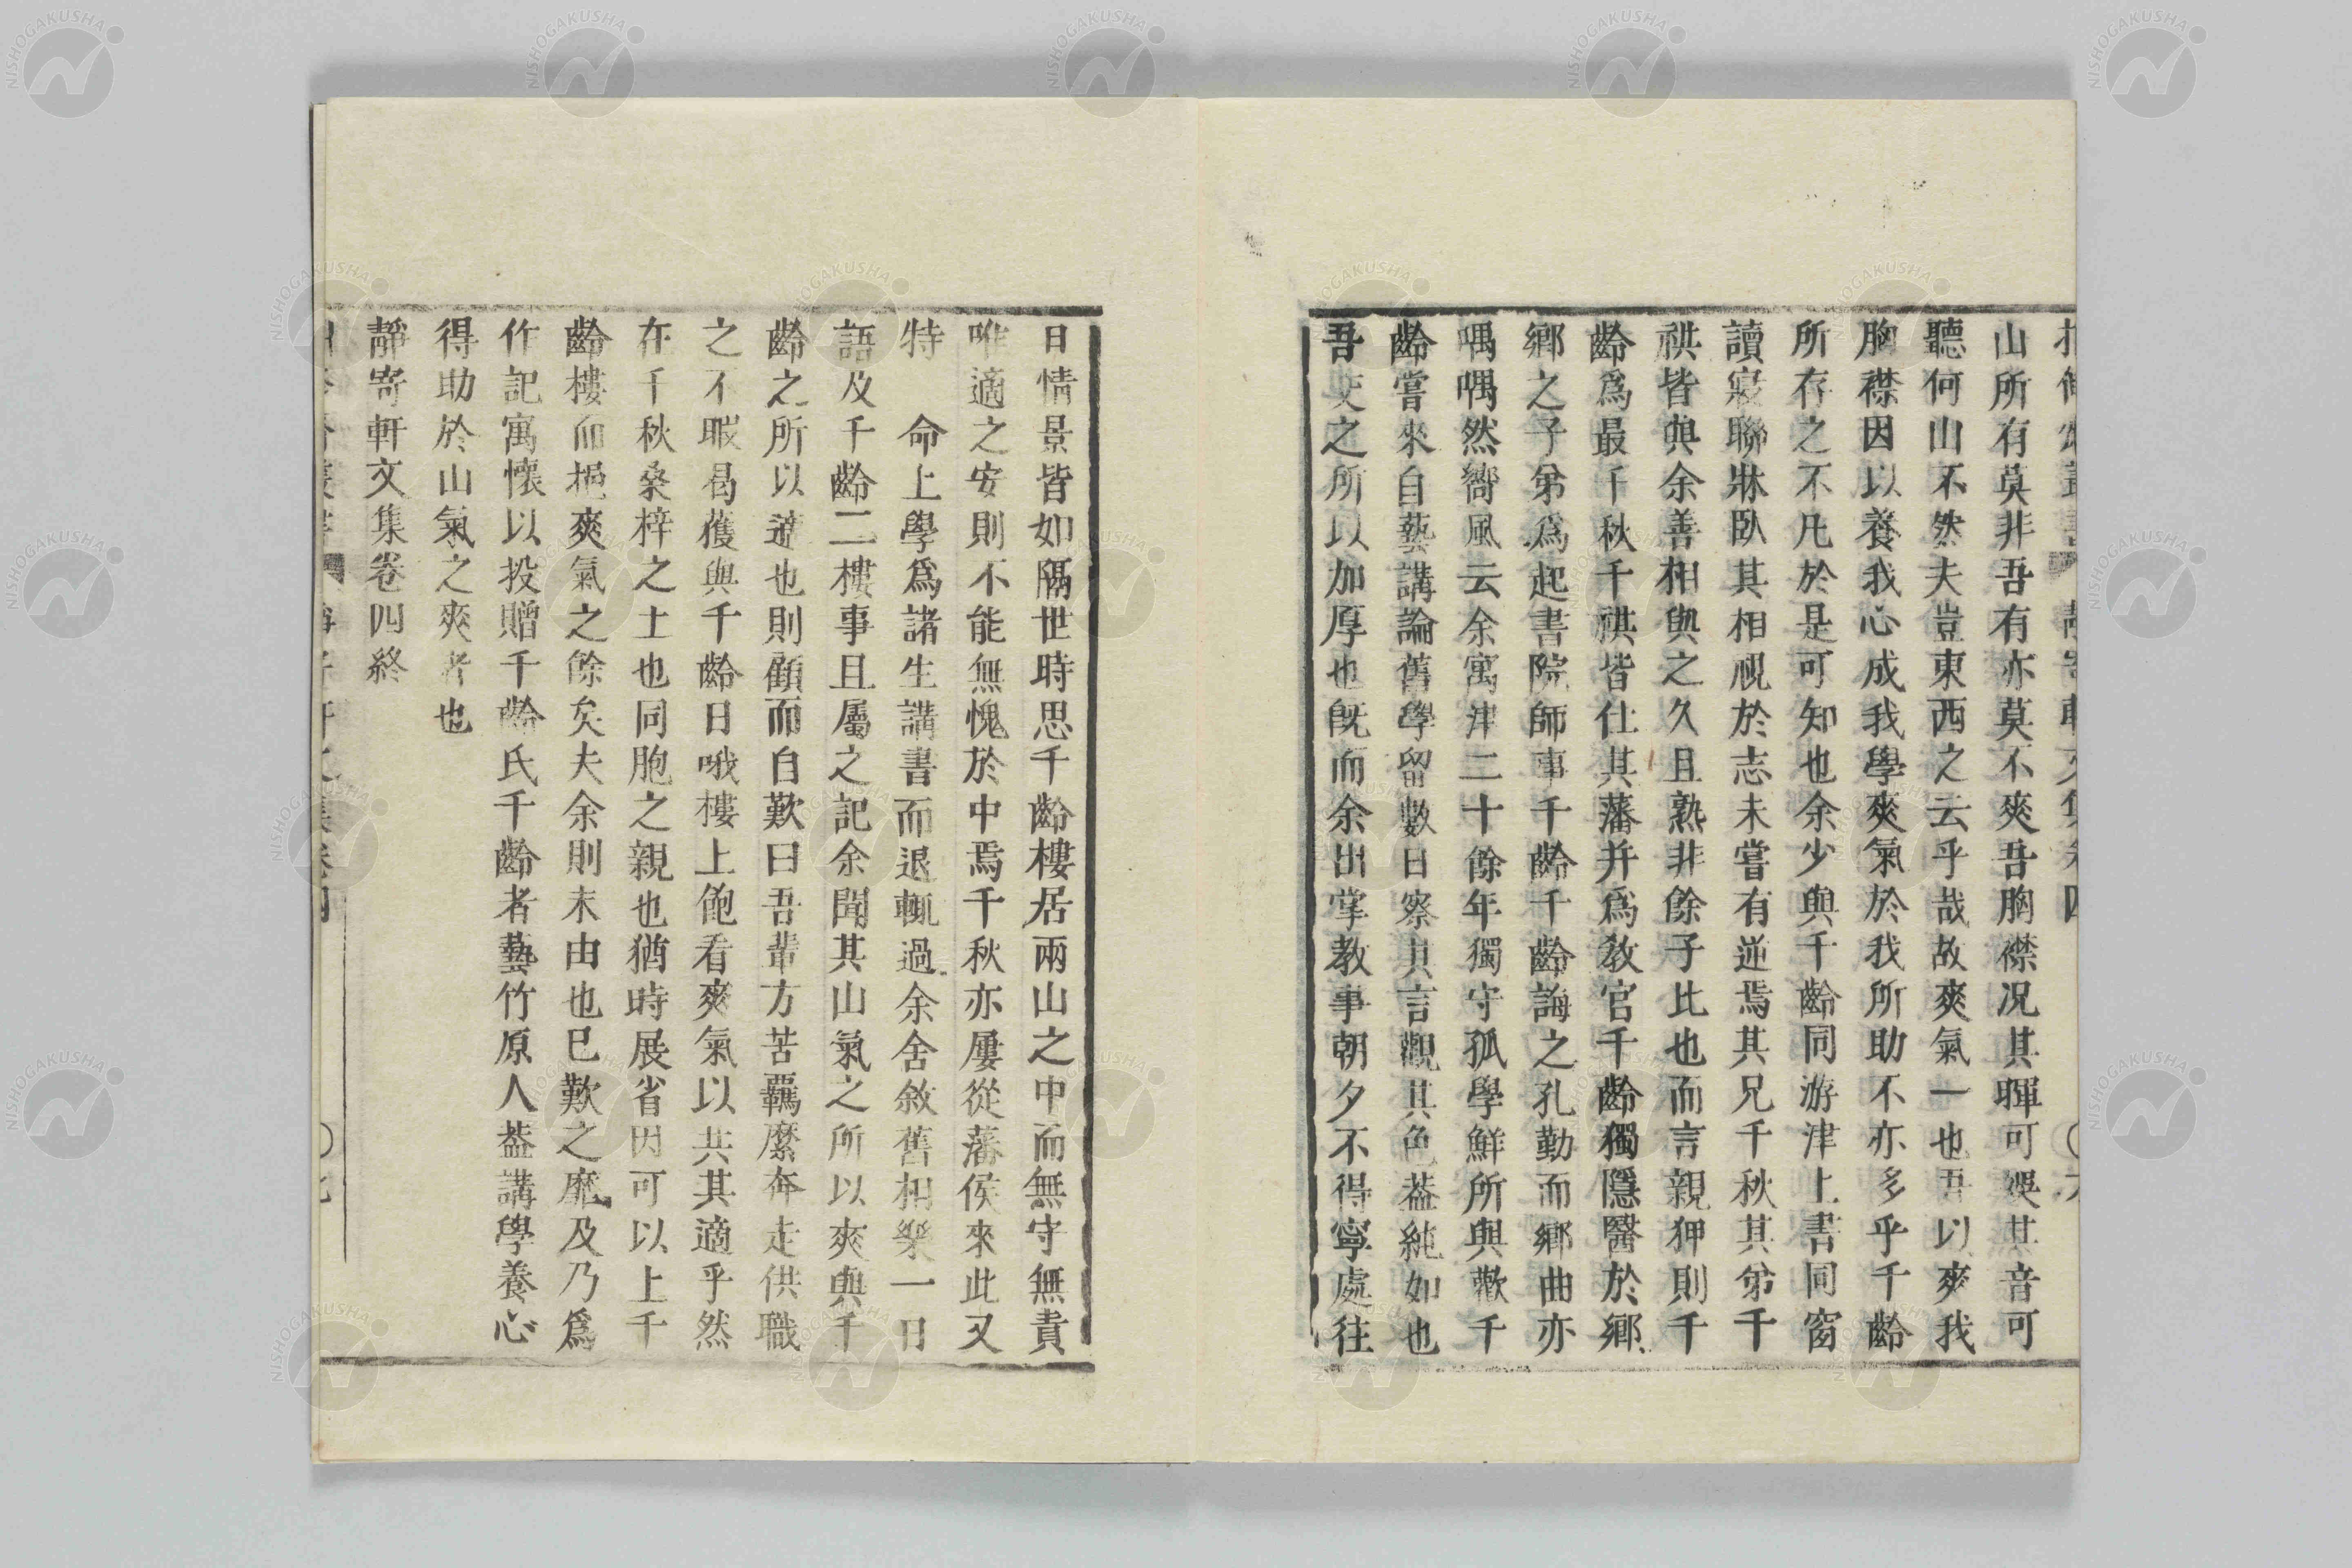 山所有莫非吾有亦莫不爽吾胸襟况其暉可娛其音可
聽何山不然夫豈東西之云乎哉故爽氣一也吾以爽我
胸襟因以養我心成我學爽氣於我所助不亦多乎千齡
所存之不凡於是可知也余少與千齡同游津上書同窗
讀寢聯牀臥其相視於志未嘗有逆焉其兄千秋其弟千
祺皆與余善相與之久且熟非餘子比也而言親狎則千
齡爲最千秋千祺皆仕其藩并爲教官千齡獨隱醫於鄉
鄉之子弟爲起書院師事千齡千齡誨之孔勤而鄉曲亦
喁喁然嚮風云余寓津二十餘年獨守孤學鮮所與歡千
齡嘗來自藝講論舊學留數日察其言觀其色葢純如也
吾交之所以加厚也既而余出掌教事朝夕不得寧處往
日情景皆如隔世時思千齡樓居兩山之中而無守無責
唯適之安則不能無愧於中焉千秋亦屢從藩侯來此又
特 命上學爲諸生講書而退輒過余舍敘舊相樂一日
語及千齡二樓事且屬之記余聞其山氣之所以爽與千
齡之所以適也則顧而自歎曰吾輩方苦羈縻奔走供職
之不暇曷獲與千齡日哦樓上飽看爽氣以共其適乎然
在千秋桑梓之土也同胞之親也猶時展省因可以上千
齡樓而挹爽氣之餘矣夫余則末由也已歎之靡及乃爲
作記寓懷以投贈千齡氏千齡者藝竹原人葢講學養心
得助於山氣之爽者也
靜寄軒文集卷四終